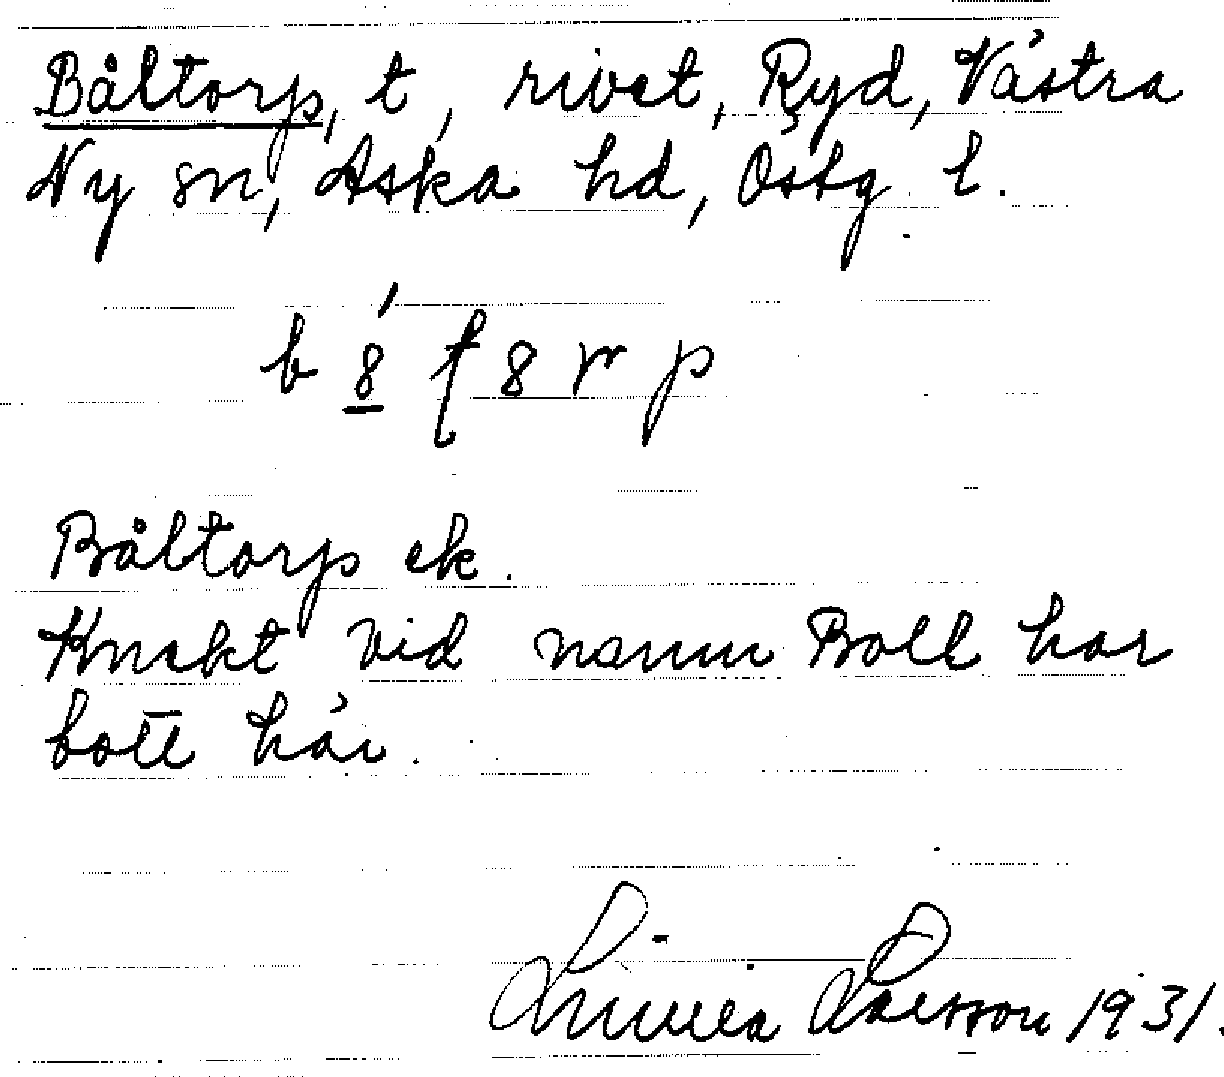 Båltorp, t, rivet, Ryd, Västra
Ny sn, Aska hd, Östg. l.
Båltorp ek.
Knekt vid namn Boll har
bott här.
Linnéa Larsson 1931.